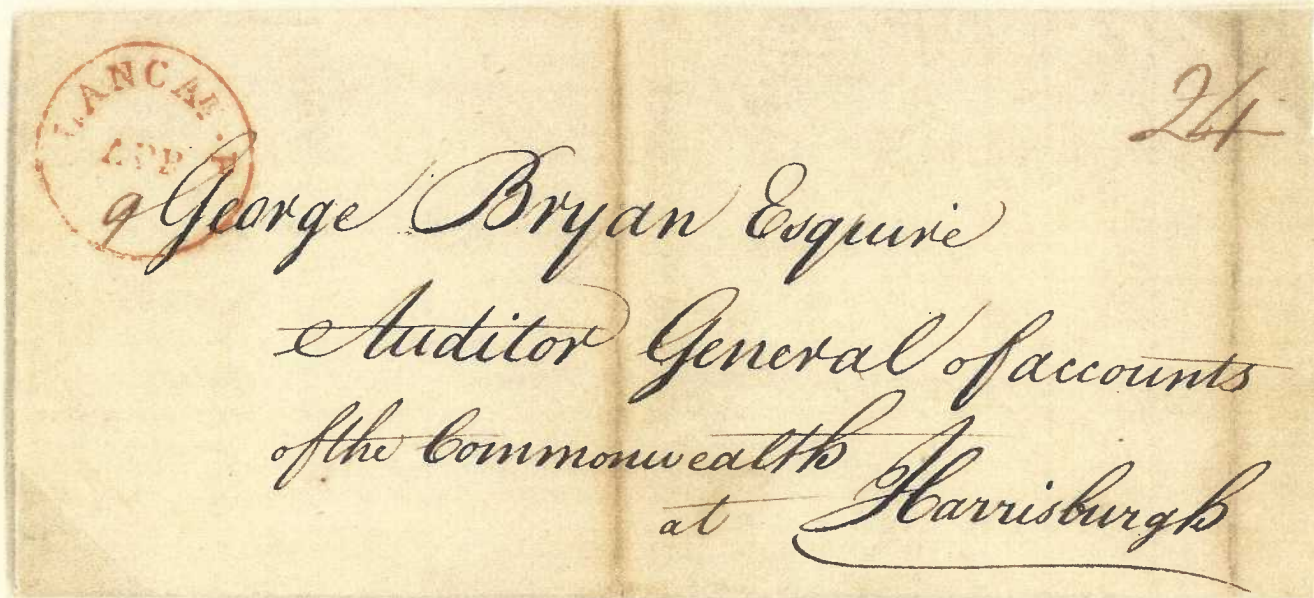 LANCAR.P
APR
9
24
George Bryan Esquire
Auditor General of accounts
of the Commonwealth
at Harrisburgh